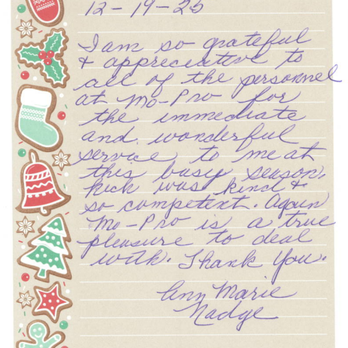 12-19-25
I am so grateful
& appreciative to
all of the personnel
at Mo-Pro for
the immediate
and wonderful
service to me at
this busy season.
Nick was kind &
so competent. Again
Mo-Pro is a true
pleasure to deal
with. Thank you.
Ann Marie
Nadge